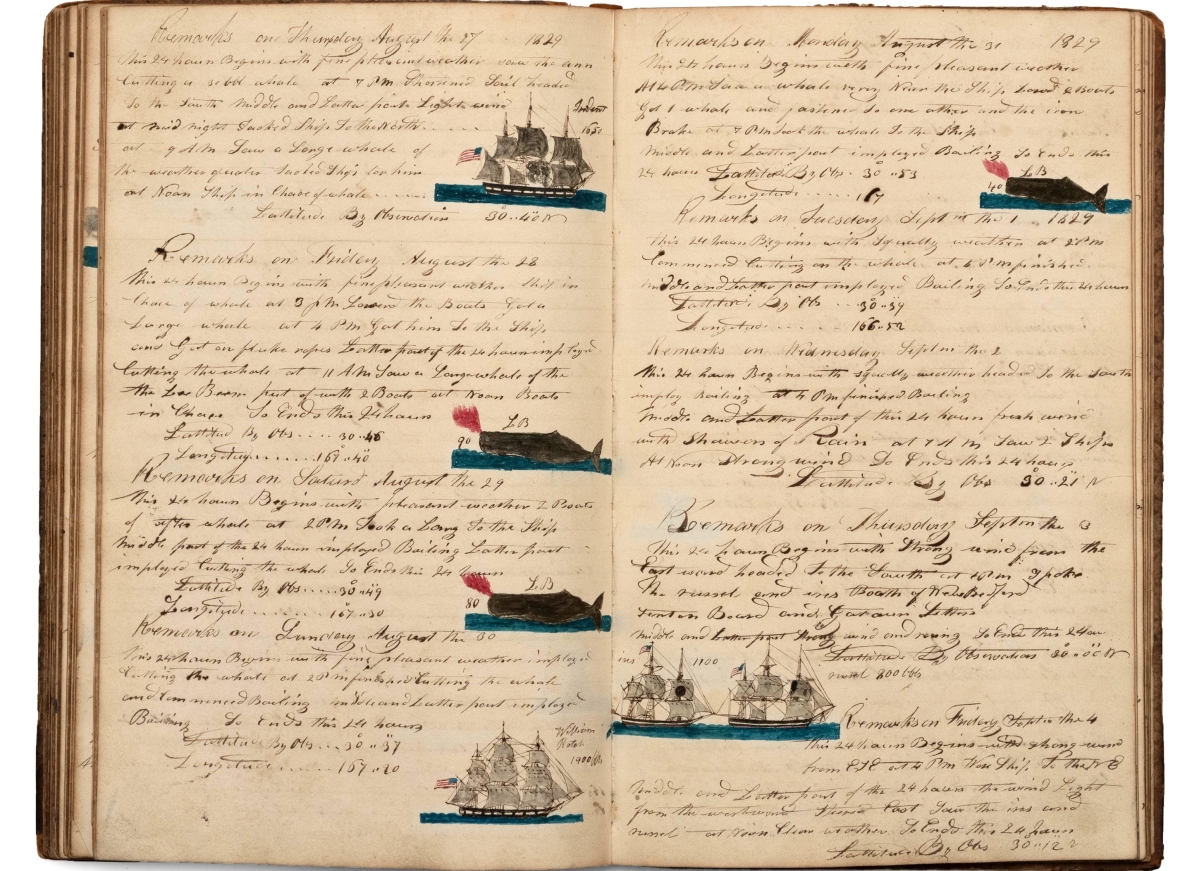 Remarks on Thursday August the 27 1829
this 24 hours Begins with fine pleasant weather saw the ann
Cutting a whale at 7 PM Shortened Sail headed
To the South Middle and Latter parts Light wind
at mid night Tacked Ship To the North
at 9 AM Saw a Large whale of
the weather quater Tacked Ship for him
at Noon Ship in Chace of whale
Lattitude By Observation 30..40 N
1650
Remarks on Friday August the 28
this 24 hours Begins with fine pleasant weather Ship in
Chace of whale at 3 PM Lowerd the Boats Got a
Large whale at 4 PM Got him To the Ship
and Got on fluke ropes Latter part of the 24 hours imployed
Cutting the whale at 11 AM Saw a Large whale of the
the Lee Beem put of with 2 Boats at Noon Boats
in Chace So Ends this 24 hours
Lattitud By Obs 30..46
Longitude 167..40
LB
90
Remarks on Saturd August the 29
this 24 hours Begins with pleasant weather 2 Boats
of after whale at 2 PM Took a Larg To the Ship
Middle part of the 24 hours imployed Boiling Latter part
imployed Cutting the whale So Ends this 24 hours
Lattitude By Obs 30..49
Longitude 167..30
LB
80
Remarks on Sunday August the 30
this 24 hours Begins with fine pleasant weather imployed
Cutting the whale at 2 PM finished Cutting the whale
and Commenced Boiling middle and Latter part imployed
Boiling So Ends this 24 hours
Lattitude By Obs 30..37
Longitude 167..20
William
Rotch
1900 bbls
Remarks on Monday August the 31 1829
this 24 hours Begins with fine pleasant weather
At 4 PM Saw a whale very Near the Ship Lowd 2 Boats
Got 1 whale and fastened to one other and the iron
Brake at 7 PM Took the whale To the Ship
middle and Latter part imployed Boiling So Ends this
24 hours Lattitude By Obs 30..53
Longitude 167
LB
40
Remarks on Tuesday Septm the 1 1829
this 24 hours Begins with Squally weather at 2 PM
Commenced Cutting on the whale at 6 PM finished
middle and Latter part imployed Boiling So Ends this 24 hours
Lattitude By Obs 30..39
Longitude 166..52
Remarks on Wednesday Septm the 2
this 24 hours Begins with Squally weather headed To the South
imploy Boiling at 4 PM finished Boiling
Middle and Latter part of this 24 hours fresh wind
with Showers of Rain at 7 AM Saw 2 Ships
At Noon Strong wind So Ends this 24 hours
Lattitude By Obs 30..21 N
Remarks on Thursday Septm the 3
this 24 hours Begins with Strong wind from the
East ward headed to the South at PM Spoke
The russel and ires Booth of New Bedford
Board and Letters
Middle and Latter part Strong wind and So Ends this 24 hour
Lattitude By Observation 30 N
russel 800 bbls
ires 1100
Remarks on Friday Septm the 4
this 24 hours Begins with Strong wind
from ESE at 4 PM Ware Ship To the NE
Middle and Latter part of the 24 hours the wind Light
from the westward East Saw the ires and
russel at Noon Clear weather So Ends this 24 hours
Lattitude By Obs 30..12